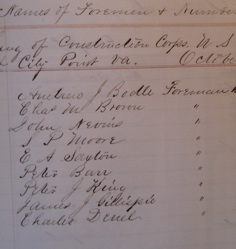 Names of Foremen & Number
of Construction Corps. U S
City Point Va. Octobe
J Bodle Foreman
Chas M Brown "
John Nevins "
S P Moore "
E A Sayton "
Peter Barr "
Peter J King "
James J Gillispie "
Charles Deniel "